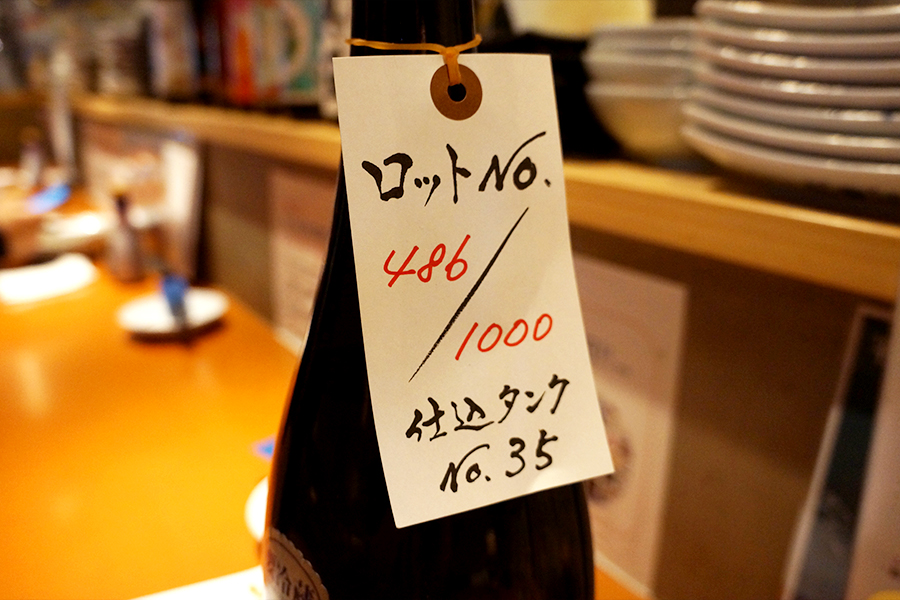 ロットNo.
486
/
1000
仕込タンク
No.35